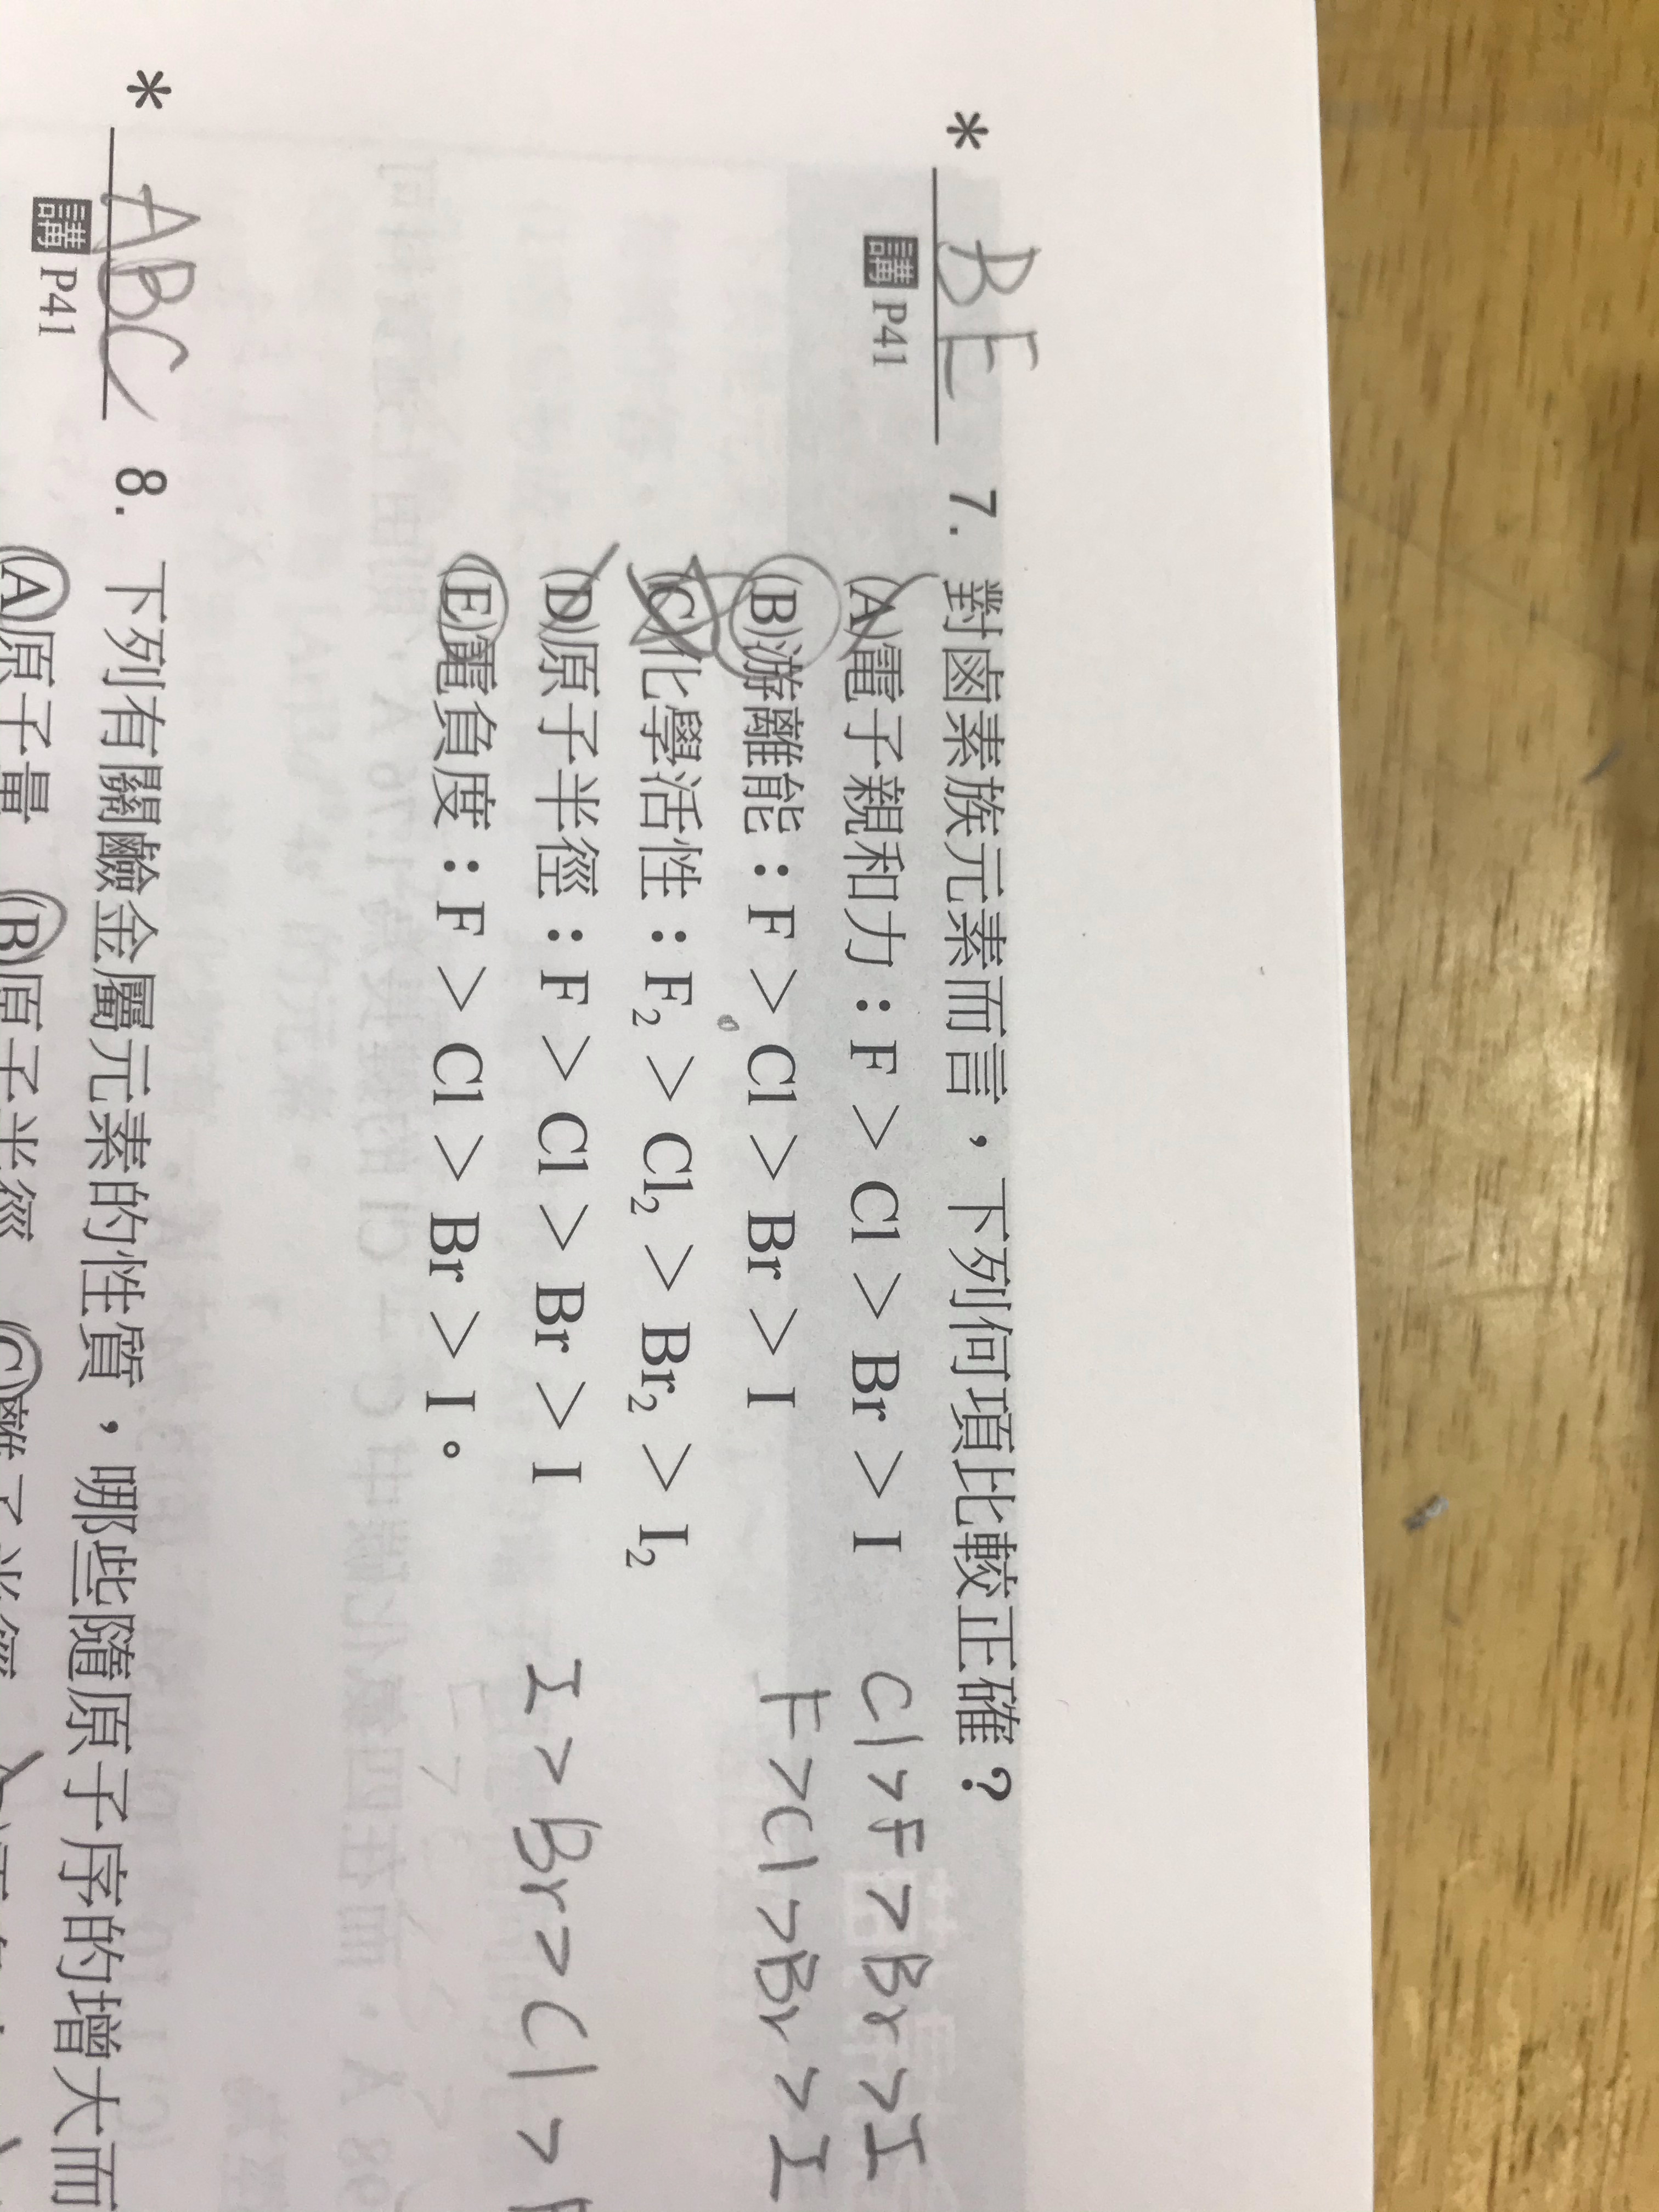 * BE 7. 對鹵素族元素而言，下列何項比較正確？
講 P41
(A)電子親和力：F > Cl > Br > I Cl > F > Br > I
(B)游離能：F > Cl > Br > I F > Cl > Br > I
(C)化學活性：F₂ > Cl₂ > Br₂ > I₂
(D)原子半徑：F > Cl > Br > I I > Br > Cl >
(E)電負度：F > Cl > Br > I。
* ABC 8. 下列有關鹼金屬元素的性質，哪些隨原子序的增大而
講 P41
(A)原子量 (B)原子半徑 (C)離子半徑